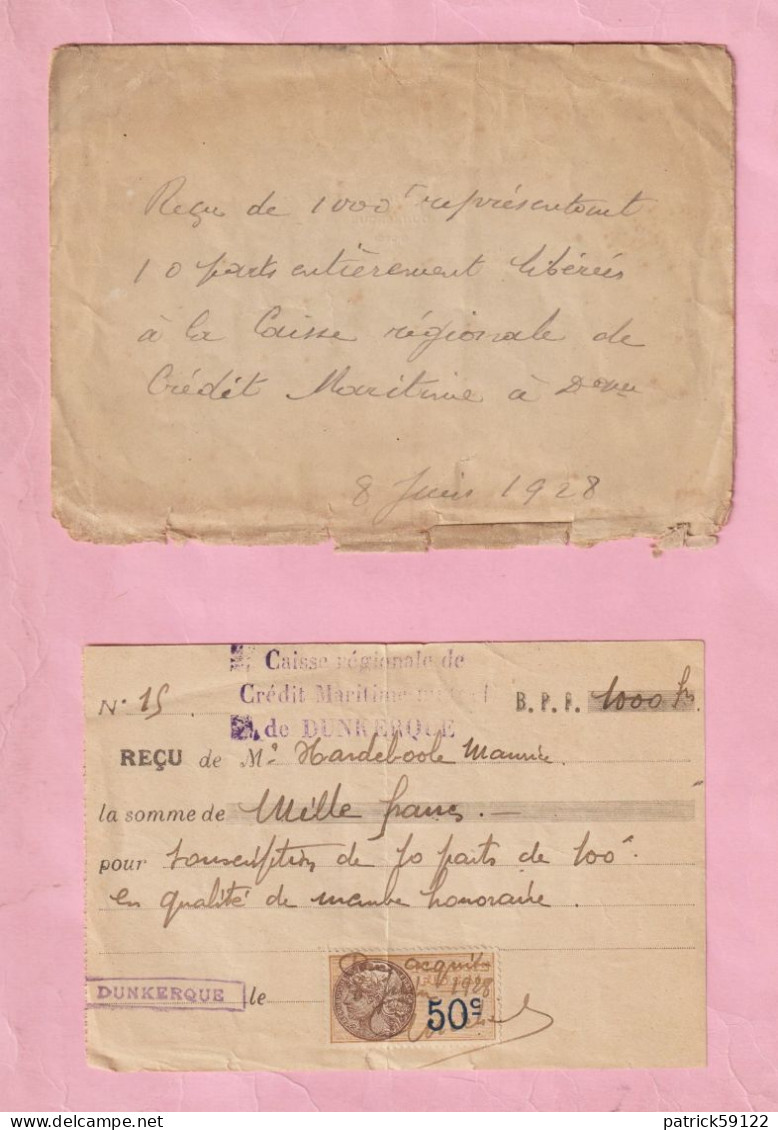 Reçu de 1000 f représentant
10 parts entièrement libérées
à la Caisse régionale de
Crédit Maritime à
8 Juin 1928
Caisse régionale de
Crédit Maritime
de DUNKERQUE
N° 15
B. P. F. 1000 frs
REÇU de Mr Hardeboole Maurice.
la somme de Mille francs. —
pour souscription de 10 parts de 100 f.
en qualité de membre honoraire.
DUNKERQUE le
Pour acquit
1928
50c
patrick59122